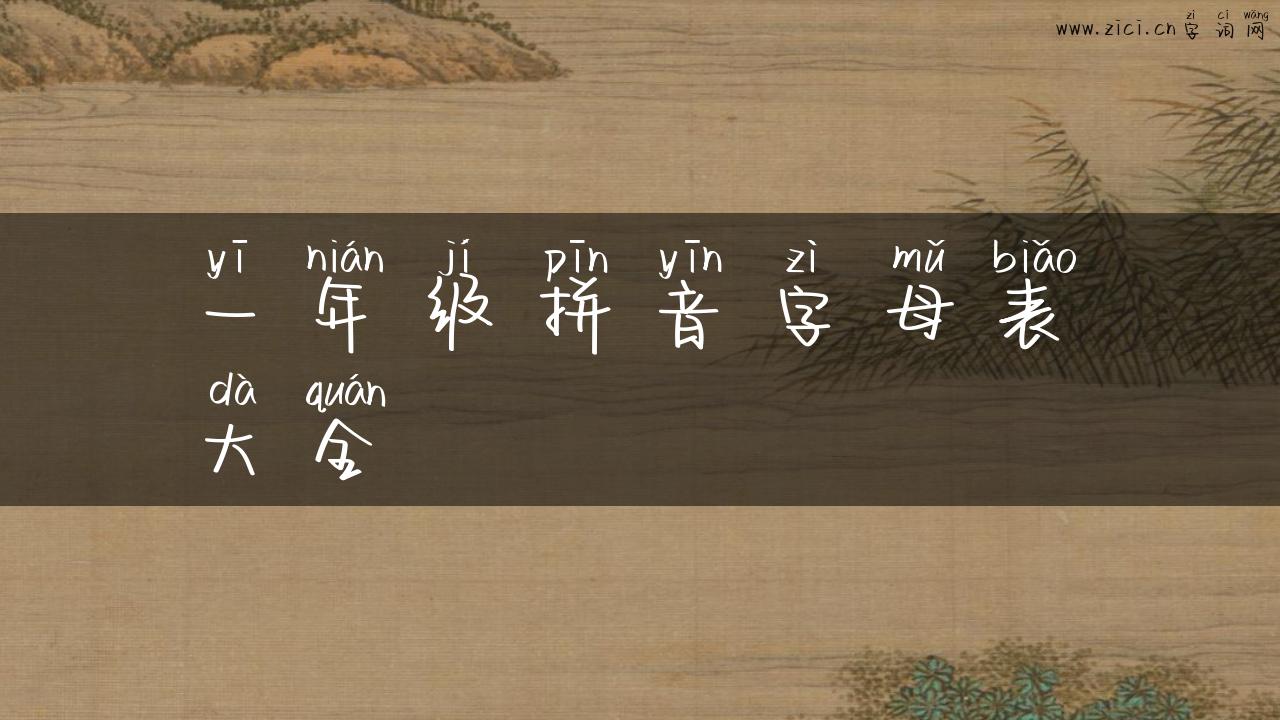 zì cí wǎng
www.zici.cn 字词网
yī nián jí pīn yīn zì mǔ biǎo
一年级拼音字母表
dà quán
大全